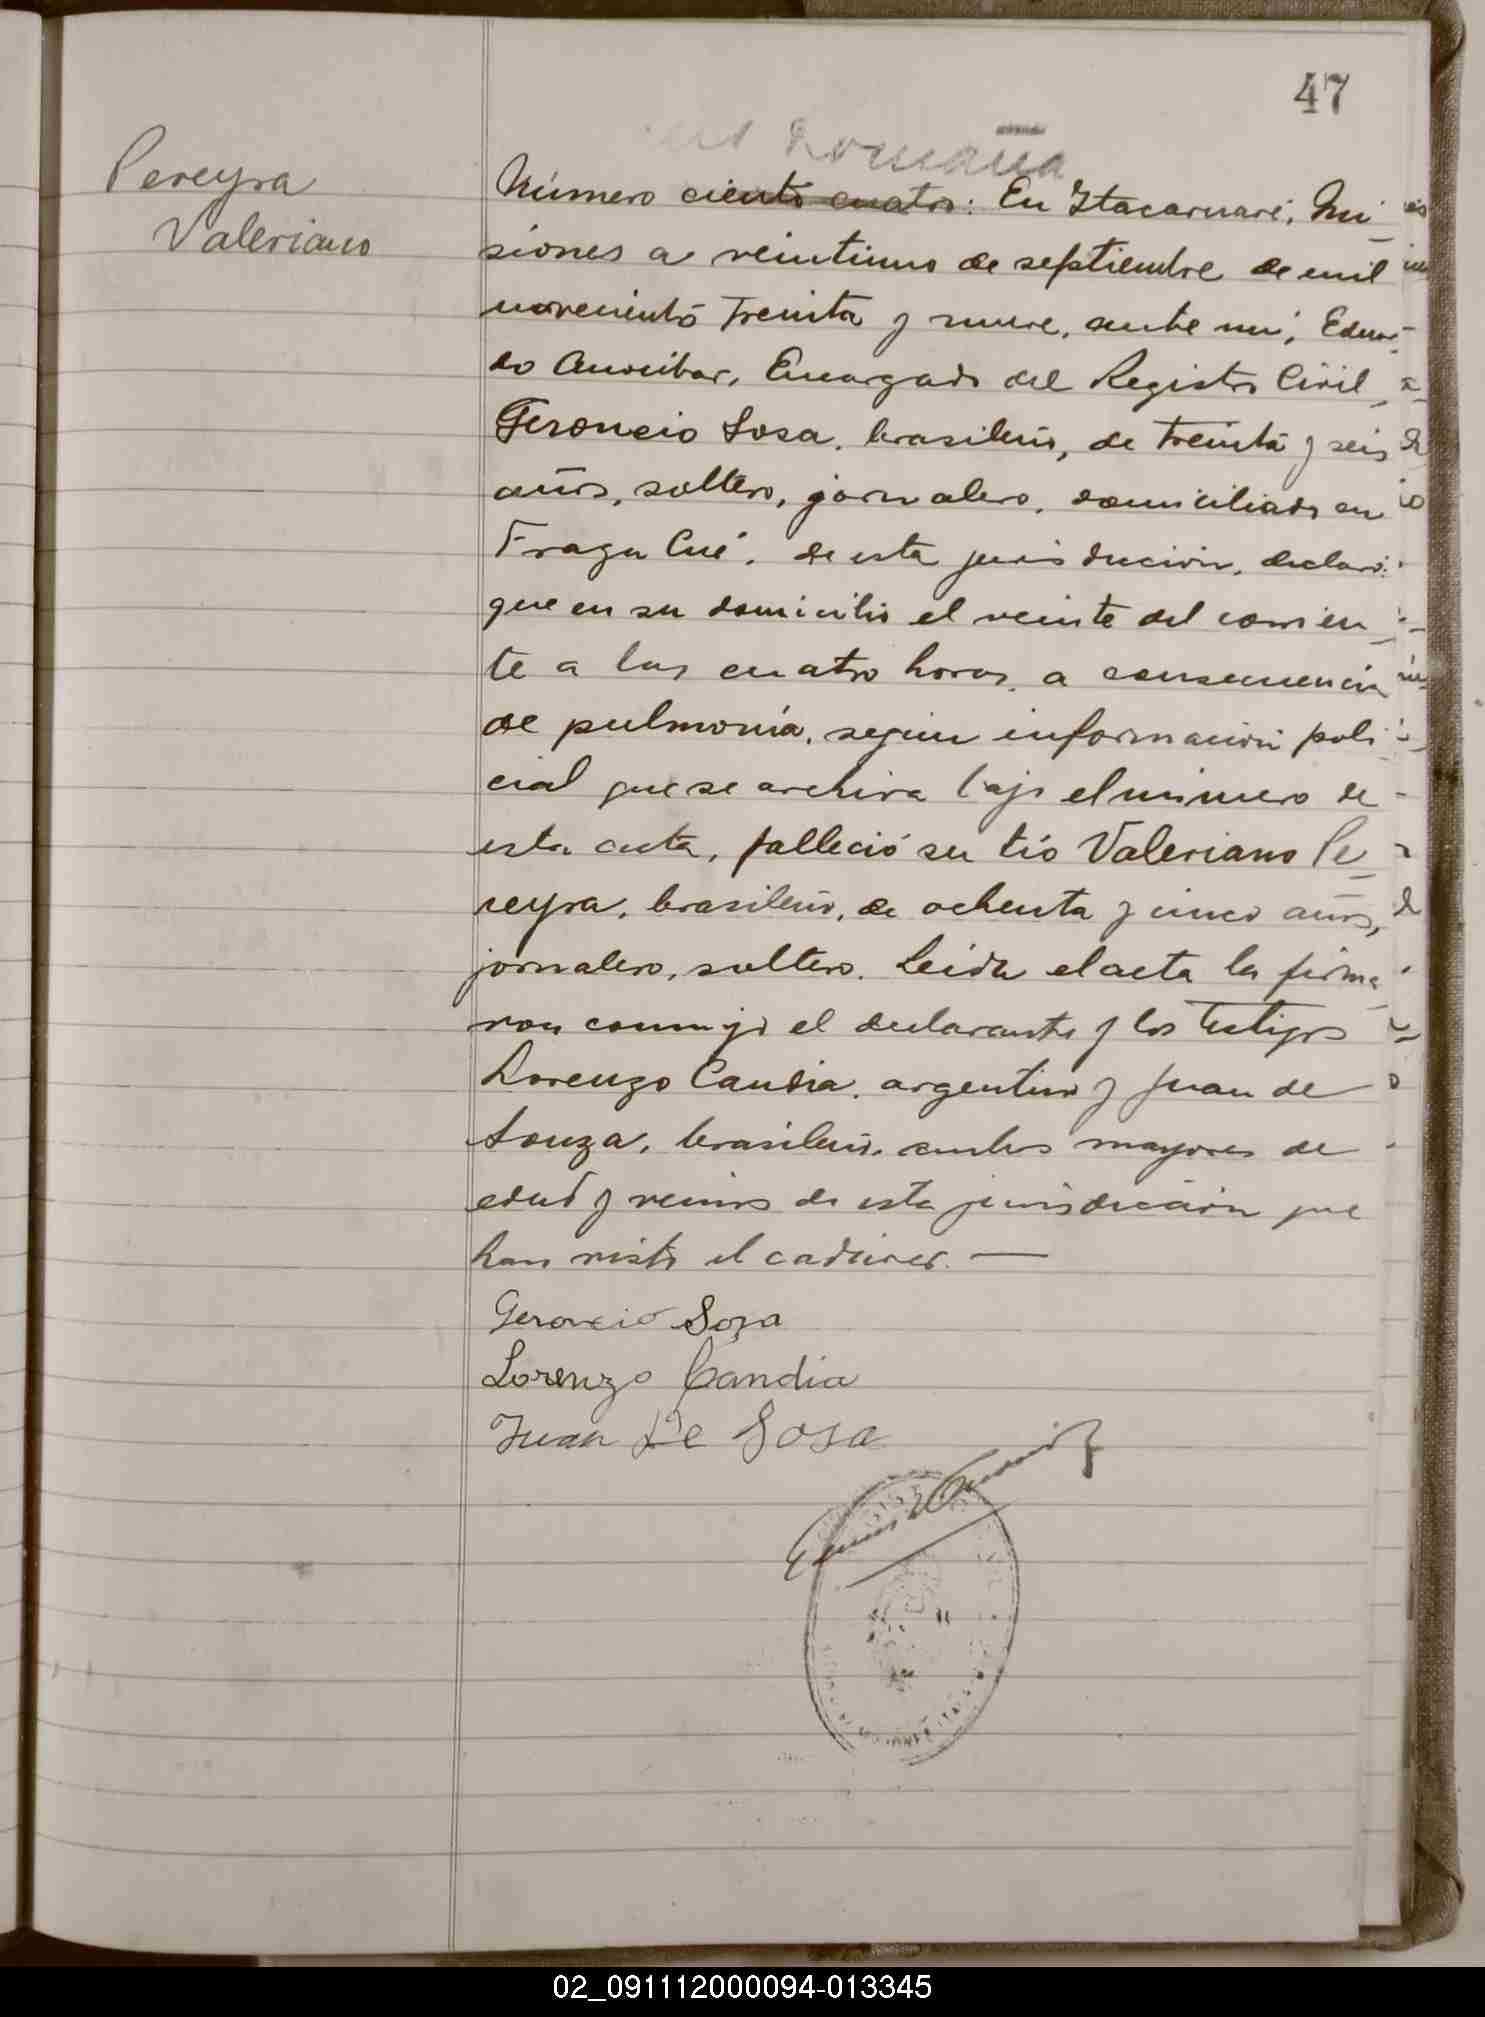 47
Pereyra
Valeriano
Número ciento cuatro: En Itacaruaré, Mi
siones a veintiuno de septiembre de mil
novecientos treinta y nueve, ante mi, Eduar
do Anocibar, Encargado del Registro Civil,
Geroncio Sosa, brasileño, de treinta y seis
años, soltero, jornalero, domiciliado en
Fraga Cué, de esta jurisdicción, declaró:
que en su domicilio el veinte del corrien
te a las cuatro horas, a consecuencia
de pulmonía, según información poli
cial que se archiva bajo el número de
esta acta, falleció su tío Valeriano Pe
reyra, brasileño, de ochenta y cinco años,
jornalero, soltero. Leida el acta la firma
ron conmigo el declarante y los testigos
Lorenzo Candia, argentino y Juan de
Souza, brasileño, ambos mayores de
edad y vecinos de esta jurisdicción que
han visto el cadáver. —
Geroncio Soza
Lorenzo Candia
Juan De Sosa
02_091112000094-013345